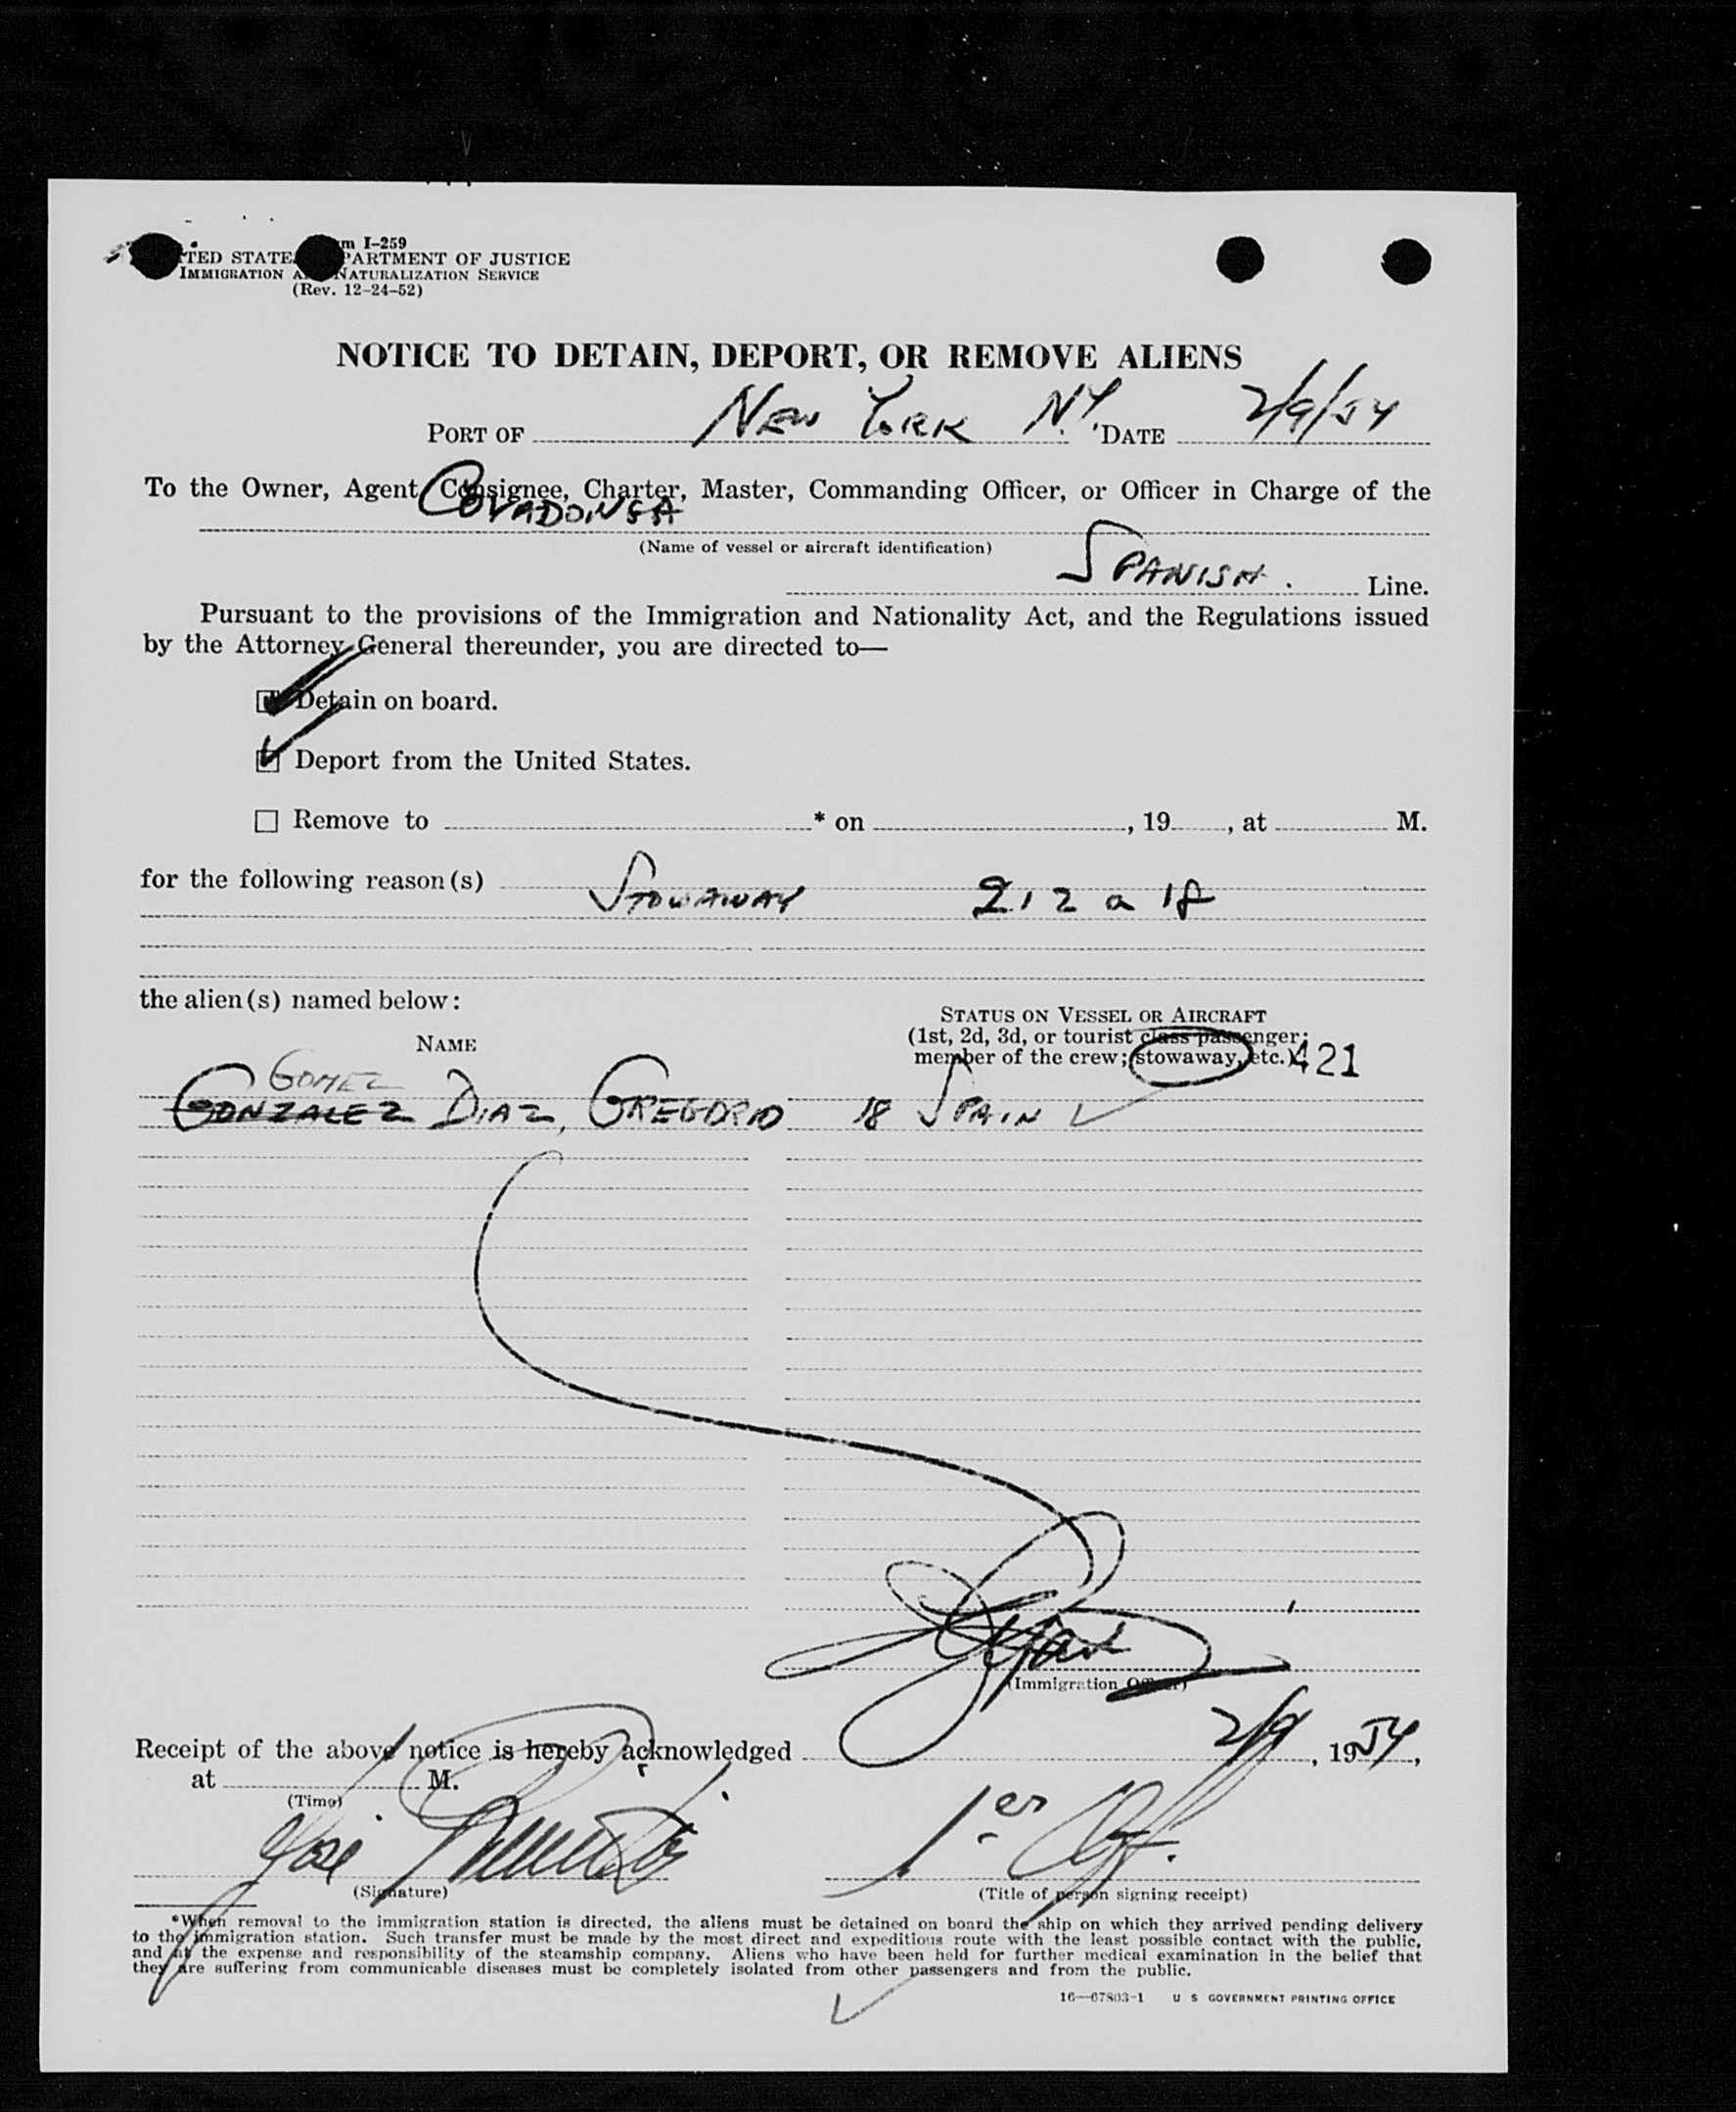 m I-259
TED STATE PARTMENT OF JUSTICE
IMMIGRATION A NATURALIZATION SERVICE
(Rev. 12-24-52)
NOTICE TO DETAIN, DEPORT, OR REMOVE ALIENS
PORT OF NEW YORK N.Y. DATE 2/9/54
To the Owner, Agent, Consignee, Charter, Master, Commanding Officer, or Officer in Charge of the
COVADONGA
(Name of vessel or aircraft identification)
SPANISH. Line.
Pursuant to the provisions of the Immigration and Nationality Act, and the Regulations issued
by the Attorney General thereunder, you are directed to—
Detain on board.
Deport from the United States.
Remove to * on , 19 , at M.
for the following reason(s) STOWAWAY 212 a 18
the alien(s) named below:
NAME
STATUS ON VESSEL OR AIRCRAFT
(1st, 2d, 3d, or tourist class passenger;
member of the crew; stowaway, etc.) 421
GOMEZ
GONZALEZ DIAZ, GREGORIO 18 SPAIN
(Immigration Officer)
Receipt of the above notice is hereby acknowledged 2/9, 1954,
at M.
(Time)
José 1er Off.
(Signature) (Title of person signing receipt)
*When removal to the immigration station is directed, the aliens must be detained on board the ship on which they arrived pending delivery
to the immigration station. Such transfer must be made by the most direct and expeditious route with the least possible contact with the public,
and at the expense and responsibility of the steamship company. Aliens who have been held for further medical examination in the belief that
they are suffering from communicable diseases must be completely isolated from other passengers and from the public.
16—67803-1 U S GOVERNMENT PRINTING OFFICE